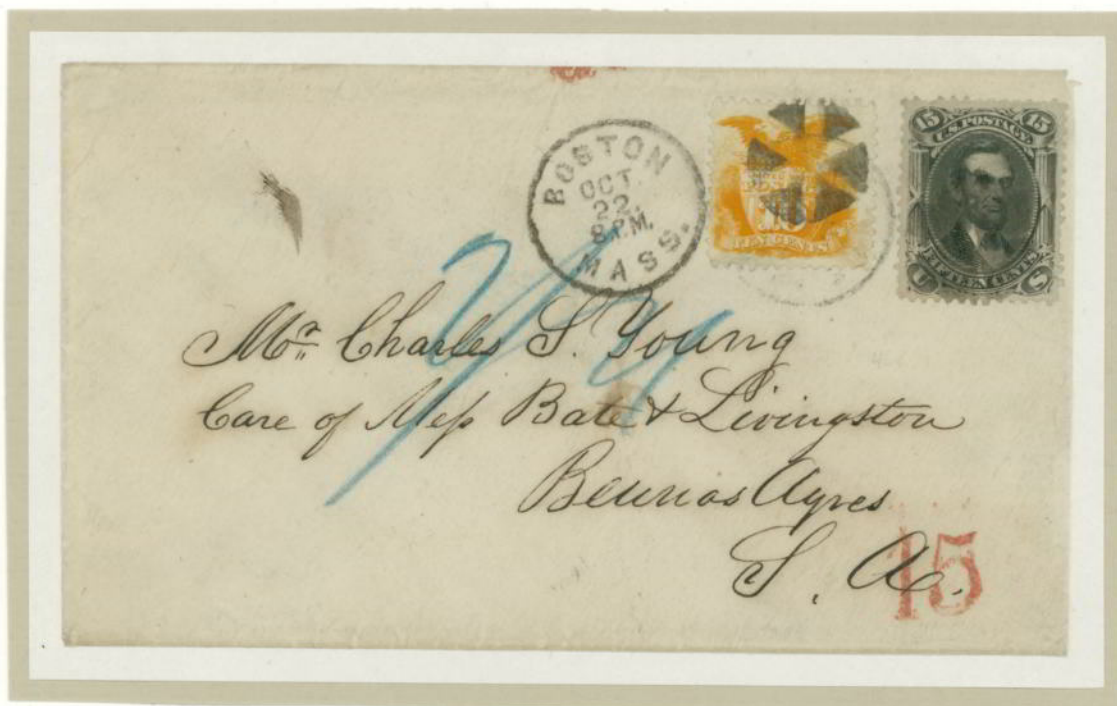 BOSTON
OCT.
22.
8 P.M.
MASS.
15 15
U.S. POSTAGE.
FIFTEEN CENTS
U S
Mr. Charles S. Young
Care of Mess Bate & Livingston
Beunos Ayres
S. A.
15